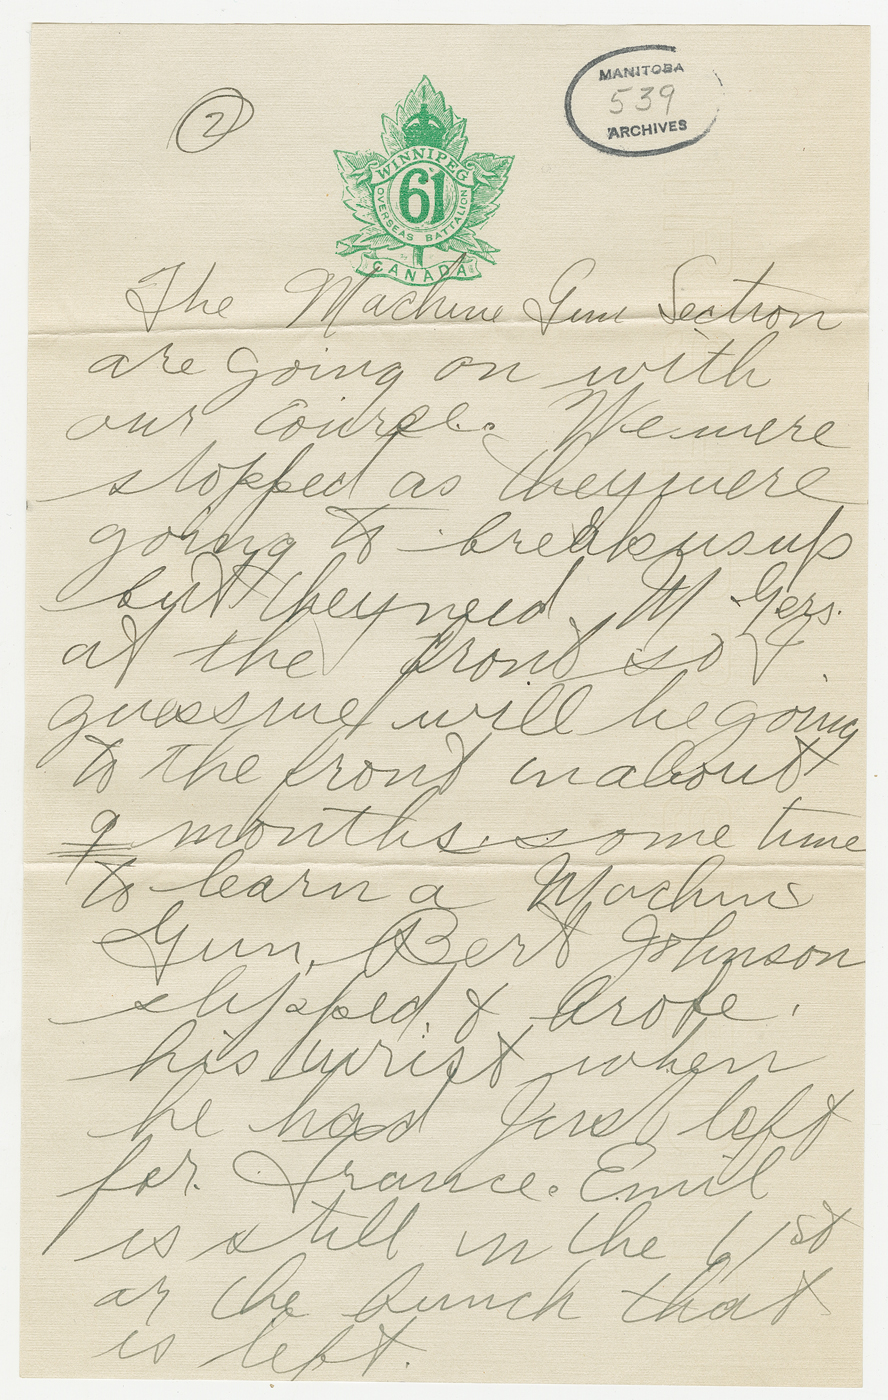 2
MANITOBA
539
ARCHIVES
WINNIPEG
61
OVERSEAS BATTALION
CANADA
The Machine Gun Section
are going on with
our course. We were
stopped as they were
going to break us up
but they need M Gers.
at the front so I
guess we will be going
to the front in about
9 months. some time
to learn a Machine
Gun. Bert Johnson
slipped & broke
his wrist when
he had just left
for France. Emil
is still in the 61st
or the bunch that
is left.